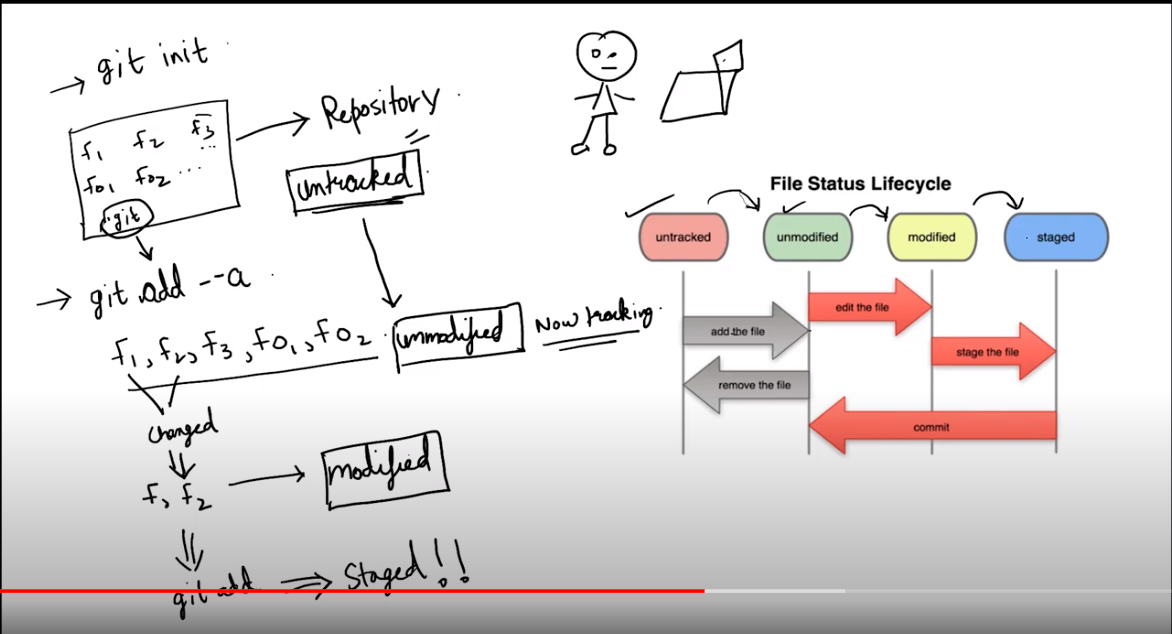 → git init
f1 f2 f3 ...
f01 f02 ...
.git
→ Repository
untracked
→ git add --a
f1, f2, f3, f01, f02.
unmodified
Now tracking.
changed
f1 f2
→ modified
git add ⇒ Staged!!
File Status Lifecycle
untracked
unmodified
modified
staged
edit the file
add the file
stage the file
remove the file
commit